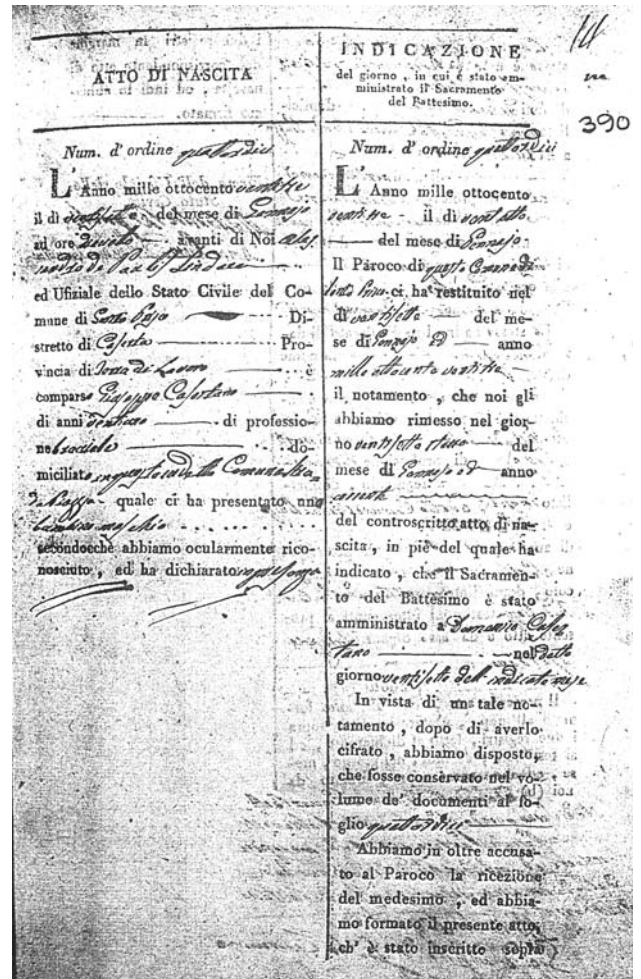 ATTO DI NASCITA
Num. d' ordine quattordici
L'Anno mille ottocento ventitre
il dì ventisette del mese di Gennajo
ad ore avanti di Noi
ed Ufiziale dello Stato Civile del Co-
mune di Di-
stretto di Caserta Pro-
vincia di Terra di Lavoro è
comparso Giuseppe Casertano
di anni di professio-
ne bracciale do-
miciliato in questo Comune
quale ci ha presentato uno
bambino maschio
secondocchè abbiamo ocularmente rico-
nosciuto , ed ha dichiarato
INDICAZIONE
del giorno , in cui è stato am-
ministrato il Sacramento
del Battesimo.
Num. d' ordine quattordici
L' Anno mille ottocento
ventitre il dì ventotto
del mese di Gennajo
Il Paroco di questo Comune di
ci ha restituito nel
dì ventisette del me-
se di Gennajo ed anno
mille ottocento ventitre
il notamento , che noi gli
abbiamo rimesso nel gior-
no ventisette del
mese di Gennajo ed anno
del controscritto atto di na-
scita , in piè del quale ha
indicato , che il Sacramen-
to del Battesimo è stato
amministrato a Domenico Caser
tano nel detto
giorno ventisette dell' indicato mese
In vista di un tale no-
tamento , dopo di averlo
cifrato , abbiamo disposto,
che fosse conservato nel vo-
lume de' documenti al fo-
glio quattordici
Abbiamo in oltre accusa-
to al Paroco la ricezione
del medesimo , ed abbia-
mo formato il presente atto,
ch' è stato inscritto sopra
390